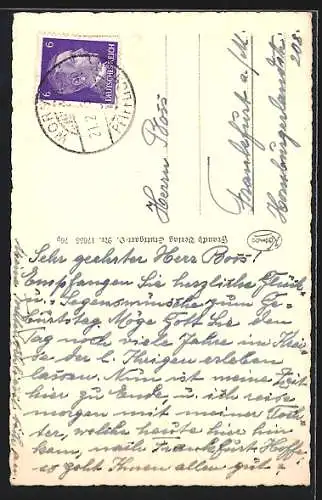 Herrn Boos
Frankfurt a/M.
Hamburgerlandstr.
208.
6 DEUTSCHES REICH 6
Brandt Verlag Stuttgart-O. Nr. 17055
Sehr geehrter Herr Boos!
Empfangen Sie herzliche Glück
u. Segenswünsche zum Ge-
burtstag Möge Gott Sie den
Tag noch viele Jahre im Krei-
se der l. Ihrigen erleben
lassen. Nun ist meine Zeit
hier zu Ende, u. ich reise
morgen mit meiner Toch-
ter, welche heute hier hin
kam, nach Frankfurt. Hoffe
es geht Ihnen allen gut!